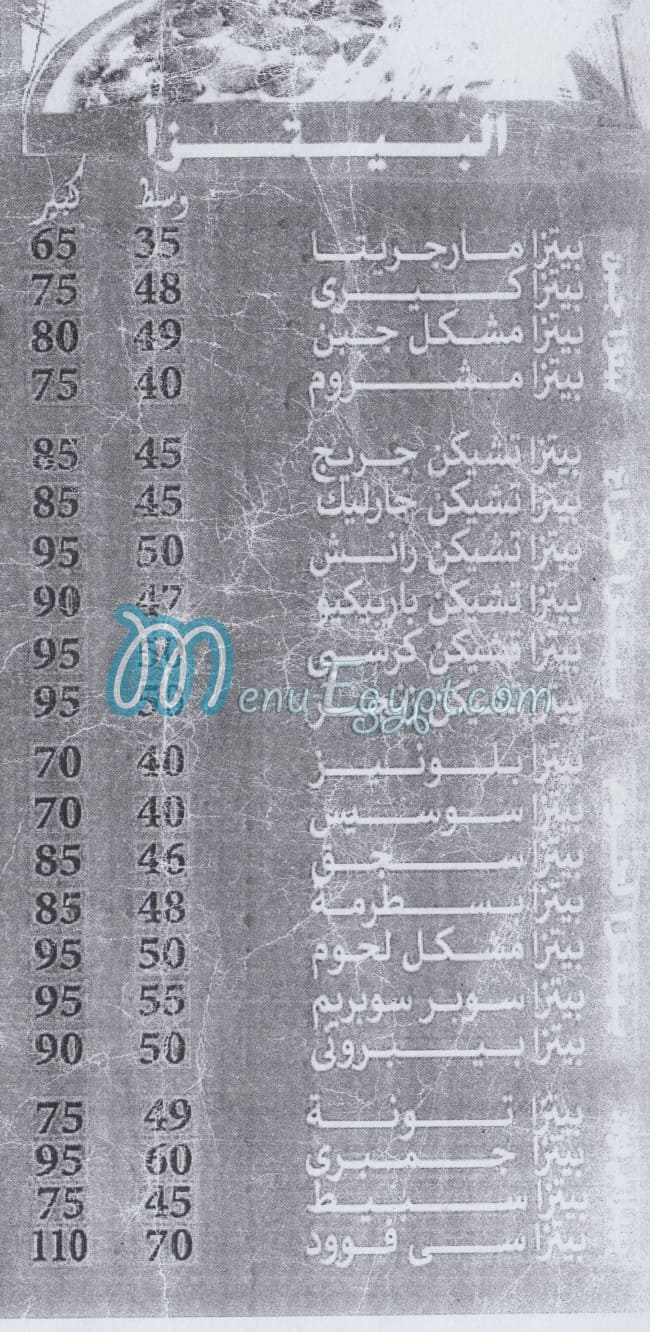 البيتزا
وسط كبير
بيتزا مارجريتا 35 65
بيتزا كيرى 48 75
بيتزا مشكل جبن 49 80
بيتزا مشروم 40 75
بيتزا تشيكن جريج 45 85
بيتزا تشيكن جارليك 45 85
بيتزا تشيكن رانش 50 95
بيتزا تشيكن باربيكيو 47 90
بيتزا تشيكن كرسبى 95
50 95
MenuEgypt.com
بيتزا بلونيز 40 70
بيتزا سوسيس 40 70
بيتزا سجق 46 85
بيتزا بسطرمة 48 85
بيتزا مشكل لحوم 50 95
بيتزا سوبر سوبريم 55 95
بيتزا بيبرونى 50 90
بيتزا تونة 49 75
بيتزا جمبرى 60 95
بيتزا سبيط 45 75
بيتزا سى فوود 70 110